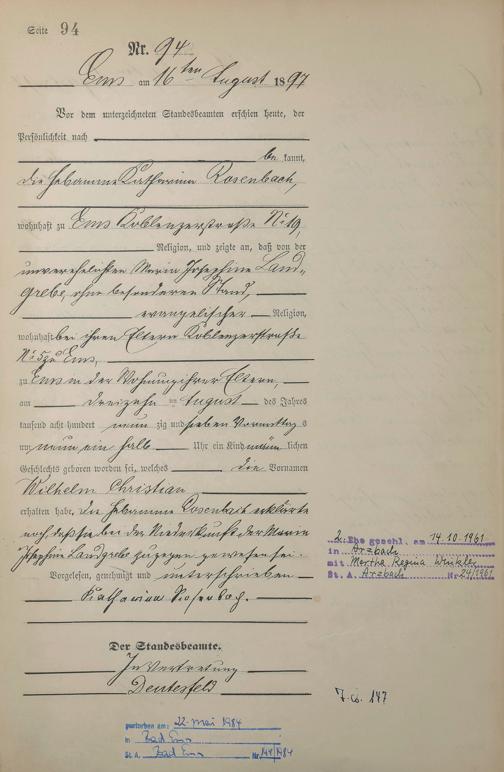 Seite 94
Nr. 94
Ems am 16ten August 1897
Vor dem unterzeichneten Standesbeamten erschien heute, der
Persönlichkeit nach
be kannt,
die Hebamme Katharina Rosenbach,
wohnhaft zu Ems Koblenzerstraße No 19,
Religion, und zeigte an, daß von der
unverehelichten Maria Josephine Land-
grebe, ohne besonderen Stand,
evangelischer Religion,
wohnhaft bei ihren Eltern Koblenzerstraße
zu Ems,
zu Ems in der Wohnung ihrer Eltern,
am dreizehn ten August des Jahres
tausend acht hundert neun zig und sieben Vormittag s
um neun ein halb Uhr ein Kind männ lichen
Geschlechts geboren worden sei, welches die Vornamen
Wilhelm Christian
erhalten habe. Die Hebamme Rosenbach erklärte
noch, daß sie bei der Niederkunft der Maria
Josephine Landgrebe zugegen gewesen sei.
Vorgelesen, genehmigt und unterschrieben
Katharina Rosenbach.
Der Standesbeamte.
In Vertretung
2. Ehe geschl. am 14.10.1961
in Arzbach
mit Martha Regina Winkler
St. A. Arzbach Nr. 24/1961
gestorben am: 22. Mai 1984
in Bad Ems
St. A. Bad Ems Nr. 144/1984